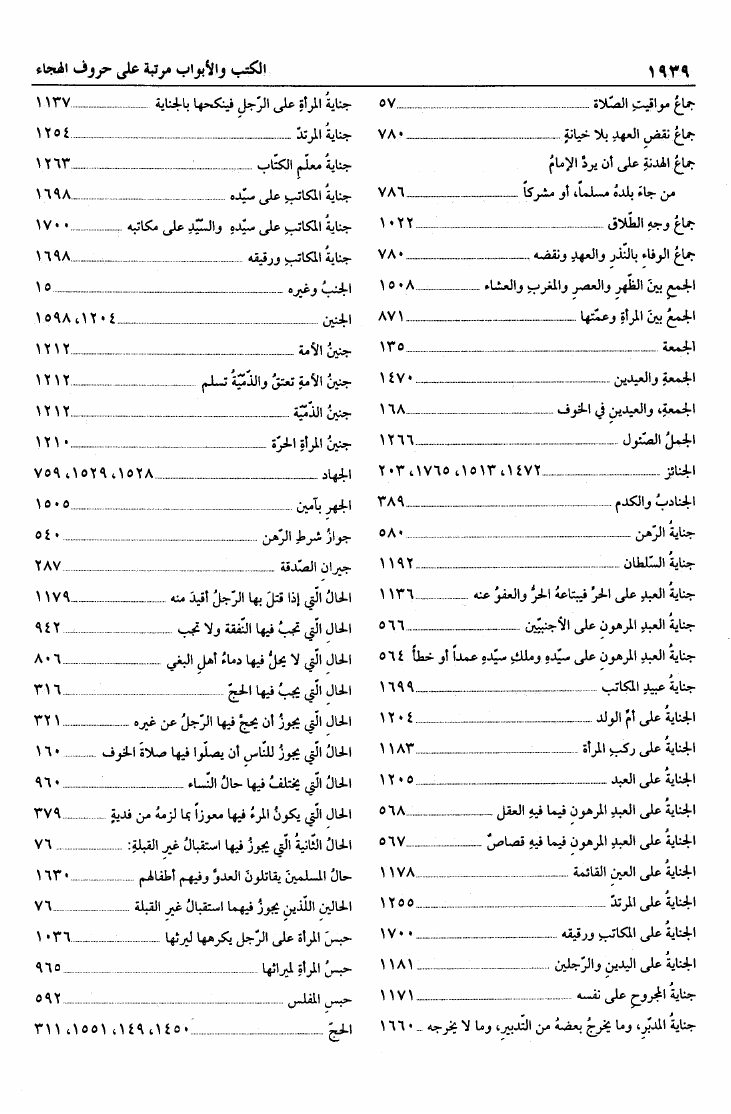 ١٩٣٩ الكتب والأبواب مرتبة على حروف الهجاء
جماعُ مواقيتِ الصّلاة ٥٧
جماعُ نقضِ العهدِ بلا خيانةٍ ٧٨٠
جماعُ الهدنةِ على أن يردَّ الإمامُ
من جاءَ بلدهُ مسلماً، أو مشركاً ٧٨٦
جماعُ وجهِ الطّلاق ١٠٢٢
جماعُ الوفاءِ بالنّذرِ والعهدِ ونقضه ٧٨٠
الجمع بينَ الظّهرِ والعصرِ والمغربِ والعشاء ١٥٠٨
الجمعُ بينَ المرأةِ وعمّتها ٨٧١
الجمعة ١٣٥
الجمعةِ والعيدين ١٤٧٠
الجمعةِ، والعيدينِ في الخوف ١٦٨
الجملُ الصّئول ١٢٦٦
الجنائز ١٤٧٢، ١٥١٣، ١٧٦٥، ٢٠٣
الجنادبُ والكدم ٣٨٩
جنايةُ الرّهن ٥٨٠
جنايةُ السّلطان ١١٩٢
جنايةُ العبدِ على الحرِّ فيبتاعهُ الحرُّ والعفوُ عنه ١١٣٦
جنايةُ العبدِ المرهونِ على الأجنبيّين ٥٦٦
جنايةُ العبدِ المرهونِ على سيّدهِ وملكِ سيّدهِ عمداً أو خطأً ٥٦٤
جنايةُ عبيدِ المكاتب ١٦٩٩
الجنايةُ على أمِّ الولد ١٢٠٤
الجنايةُ على ركبِ المرأة ١١٨٣
الجنايةُ على العبد ١٢٠٥
الجنايةُ على العبدِ المرهونِ فيما فيهِ العقل ٥٦٨
الجنايةُ على العبدِ المرهونِ فيما فيهِ قصاصٌ ٥٦٧
الجنايةُ على العينِ القائمة ١١٧٨
الجنايةُ على المرتدّ ١٢٥٥
الجنايةُ على المكاتبِ ورقيقه ١٧٠٠
الجنايةُ على اليدينِ والرّجلين ١١٨١
جنايةُ المجروحِ على نفسه ١١٧١
جنايةُ المدبّرِ، وما يخرجُ بعضهُ من التّدبيرِ، وما لا يخرجه ١٦٦٠
جنايةُ المرأةِ على الرّجلِ فينكحها بالجناية ١١٣٧
جنايةُ المرتدّ ١٢٥٤
جنايةُ معلّمِ الكتّاب ١٢٦٣
جنايةُ المكاتبِ على سيّده ١٦٩٨
جنايةُ المكاتبِ على سيّدهِ والسّيّدِ على مكاتبه ١٧٠٠
جنايةُ المكاتبِ ورقيقه ١٦٩٨
الجنبُ وغيره ١٥
الجنين ١٢٠٤، ١٥٩٨
جنينُ الأمة ١٢١٢
جنينُ الأمةِ تعتقُ والذّمّيّةُ تسلم ١٢١٢
جنينُ الذّمّيّة ١٢١٢
جنينُ المرأةِ الحرّة ١٢١٠
الجهاد ١٥٢٨، ١٥٢٩، ٧٥٩
الجهرِ بآمين ١٥٠٥
جوازُ شرطِ الرّهن ٥٤٠
جيرانِ الصّدقة ٢٨٧
الحالُ الّتي إذا قتلَ بها الرّجلُ أقيدَ منه ١١٧٩
الحالِ الّتي تجبُ فيها النّفقة ولا تجب ٩٤٢
الحالِ الّتي لا يحلُّ فيها دماءُ أهلِ البغي ٨٠٦
الحالِ الّتي يجبُ فيها الحجّ ٣١٦
الحالُ الّتي يجوزُ أن يحجَّ فيها الرّجلُ عن غيره ٣٢١
الحالُ الّتي يجوزُ للنّاسِ أن يصلّوا فيها صلاةَ الخوف ١٦٠
الحالُ الّتي يختلفُ فيها حالُ النّساء ٩٦٠
الحالِ الّتي يكونُ المرءُ فيها معوزاً بما لزمهُ من فديةٍ ٣٧٩
الحالُ الثّانيةُ الّتي يجوزُ فيها استقبالُ غيرِ القبلةِ: ٧٦
حالُ المسلمينَ يقاتلونَ العدوَّ وفيهم أطفالهم ١٦٣٠
الحالينِ اللّذينِ يجوزُ فيهما استقبالُ غيرِ القبلة ٧٦
حبسَ المرأة على الرّجلِ يكرهها ليرثها ١٠٣٦
حبسُ المرأةِ لميراثها ٩٦٥
حبسِ المفلس ٥٩٢
الحجّ ١٤٥٠، ١٤٩، ١٥٥١، ٣١١